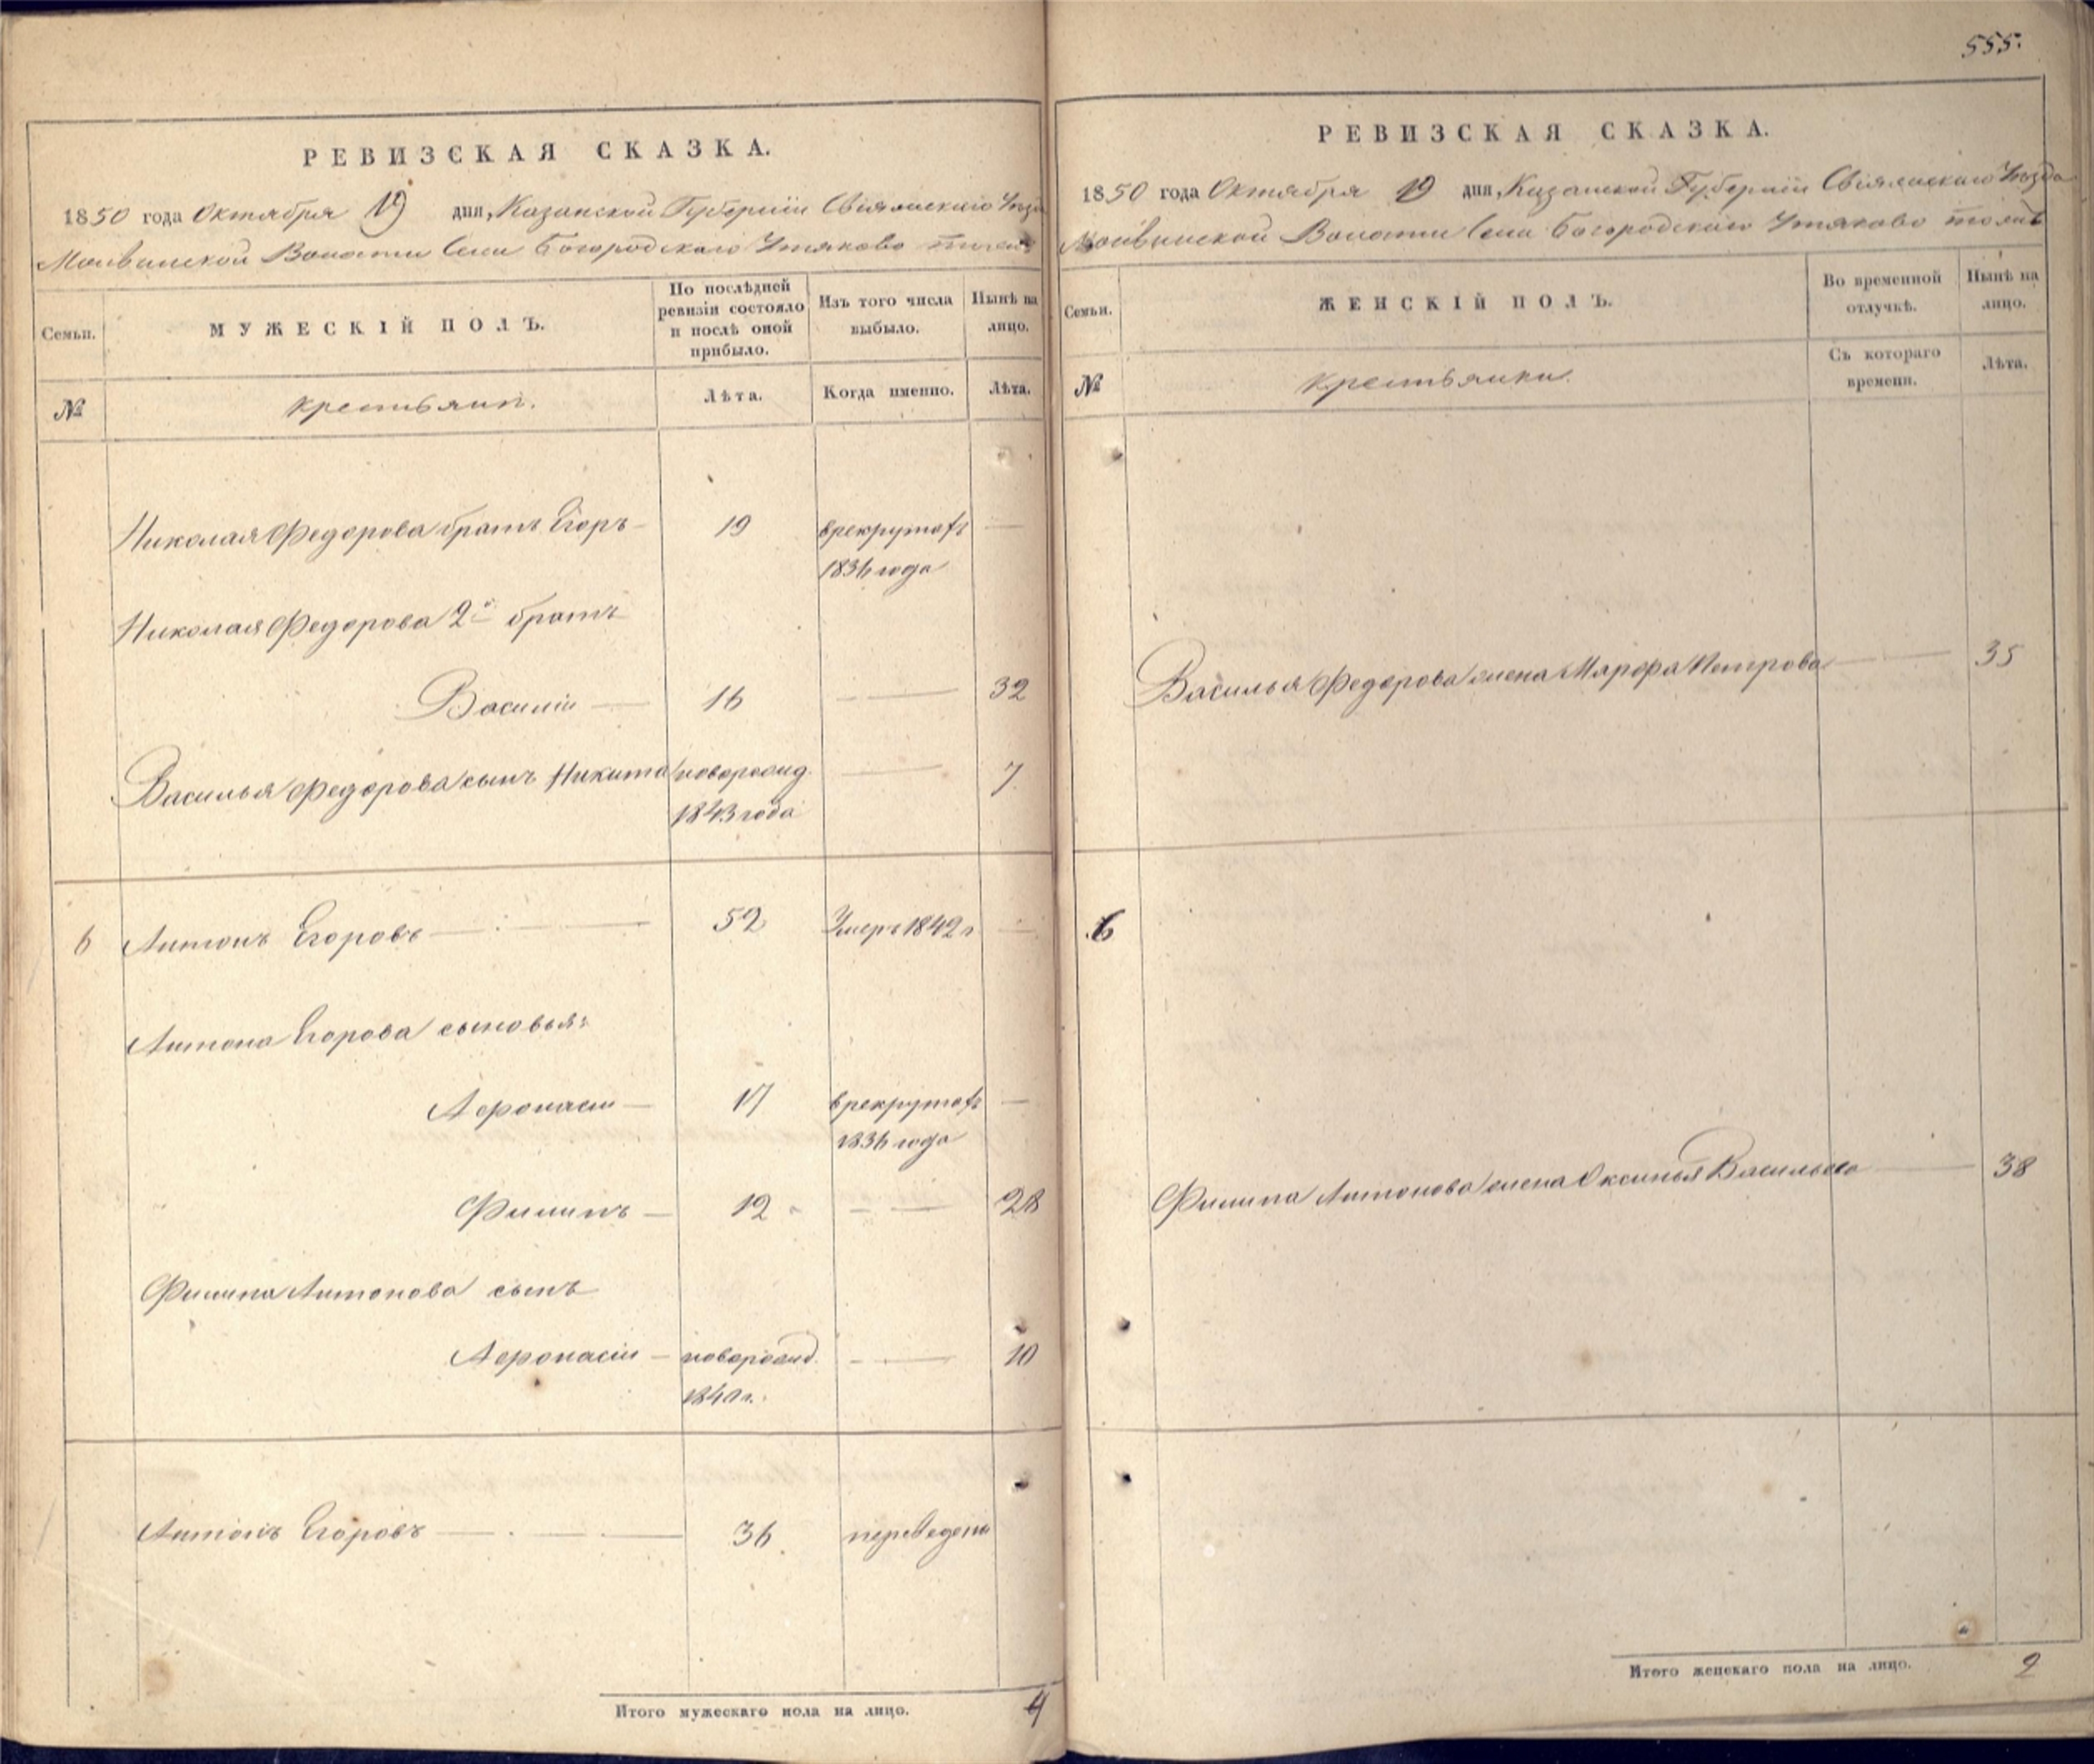 РЕВИЗСКАЯ СКАЗКА.
1850 года Октября 19 дня, Казанской Губернии Свіяжскаго Уѣзда
Волости Села Богородскаго Утяково тожъ
Семьи.
МУЖЕСКІЙ ПОЛЪ.
По послѣдней
ревизіи состояло
и послѣ оной
прибыло.
Изъ того числа
выбыло.
Нынѣ на
лицо.
№
крестьяне.
Лѣта.
Когда именно.
Лѣта.
Николая Федорова братъ Егоръ — 19 в рекрутахъ —
1836 года
Николая Федорова 2й братъ
Василій — 16 — 32
Василья Федорова сынъ Никита новорожд. — 7
1843 года
6 Антонъ Егоровъ — 52 Умеръ 1842 г —
Антона Егорова сыновья:
Афонасій — 17 в рекрутахъ —
1836 года
Филипъ — 12 — 28
Филипа Антонова сынъ
Афонасій — новорожд. — 10
1840 г.
Антонъ Егоровъ — 36 переведены
Итого мужескаго пола на лицо. 4
555.
РЕВИЗСКАЯ СКАЗКА.
1850 года Октября 19 дня, Казанской Губерніи Свіяжскаго Уѣзда
Волости Села Богородскаго Утяково тожъ
Семьи.
ЖЕНСКІЙ ПОЛЪ.
Во временной
отлучкѣ.
Нынѣ на
лицо.
№
крестьянки.
Съ котораго
времени.
Лѣта.
Василья Федорова жена Марфа Петрова — 35
6
Филипа Антонова жена Оксинья Васильева — 38
Итого женскаго пола на лицо. 2